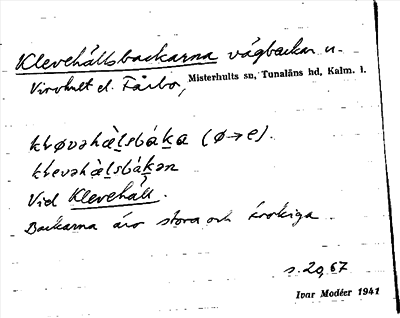 Klevehällsbackarna vägbackar n.
Virvhult el. Fårbo, Misterhults sn, Tunaläns hd, Kalm. l.
klevəhæ̀lsbáka (ø→e).
klevəhæ̀lsbákən
Vid Klevehäll.
Backarna äro stora och krokiga
s. 29, 67
Ivar Modéer 1941